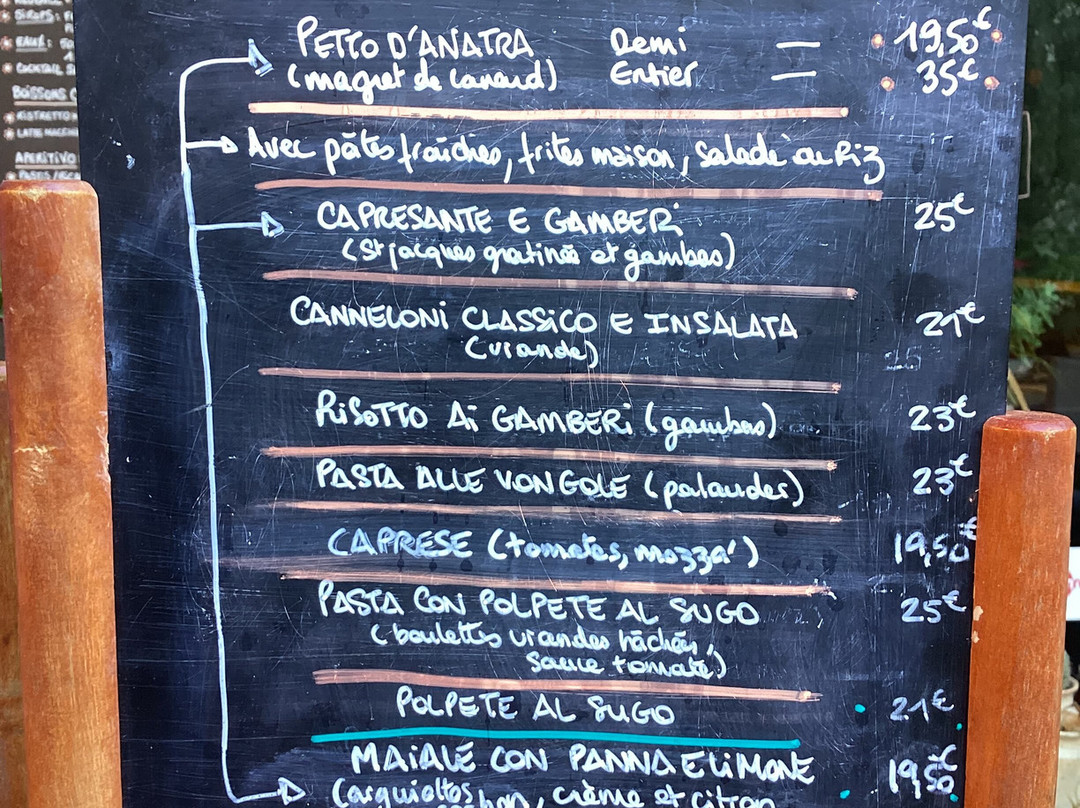 SIROPS:
EAUX:
COCKTAIL
BOISSONS
RISTRETTO
APERITIVO
PETTO D'ANATRA Demi — 19,50€
(magret de canard) Entier — 35€
Avec pâtes fraîches, frites maison, salade au Riz
CAPRESANTE E GAMBERI 25€
(St jacques gratinés et gambas)
CANNELONI CLASSICO E INSALATA 21€
(viande)
RISOTTO Ai GAMBERi (gambas) 23€
PASTA ALLE VONGOLE (palaudes) 23€
CAPRESE (tomates, mozza') 19,50€
PASTA CON POLPETE AL SUGO 25€
(boulettes viandes hâchées,
sauce tomate)
POLPETE AL SUGO 21€
MAIALE CON PANNA E LIMONE 19,50€
crème et citron